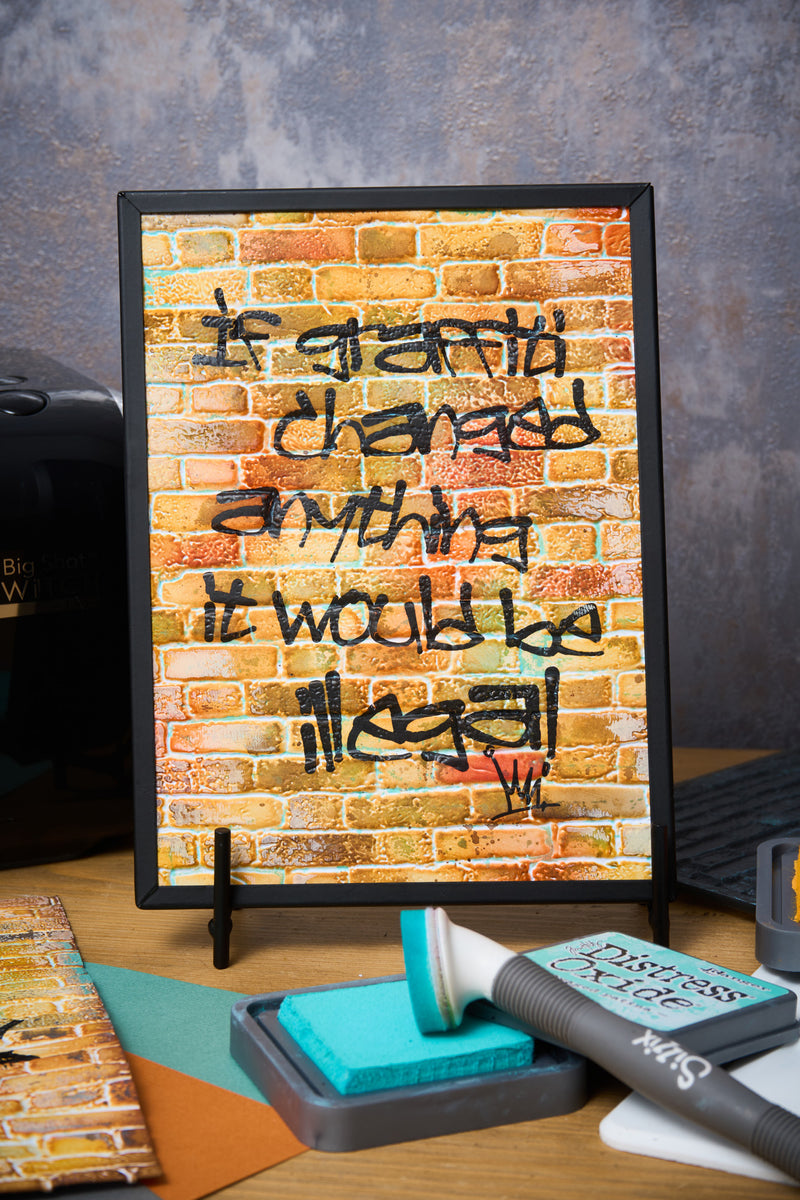 if graffiti
changed
anything
it would be
illegal
Big Shot
SWITCH
Distress
Oxide
Sizzix